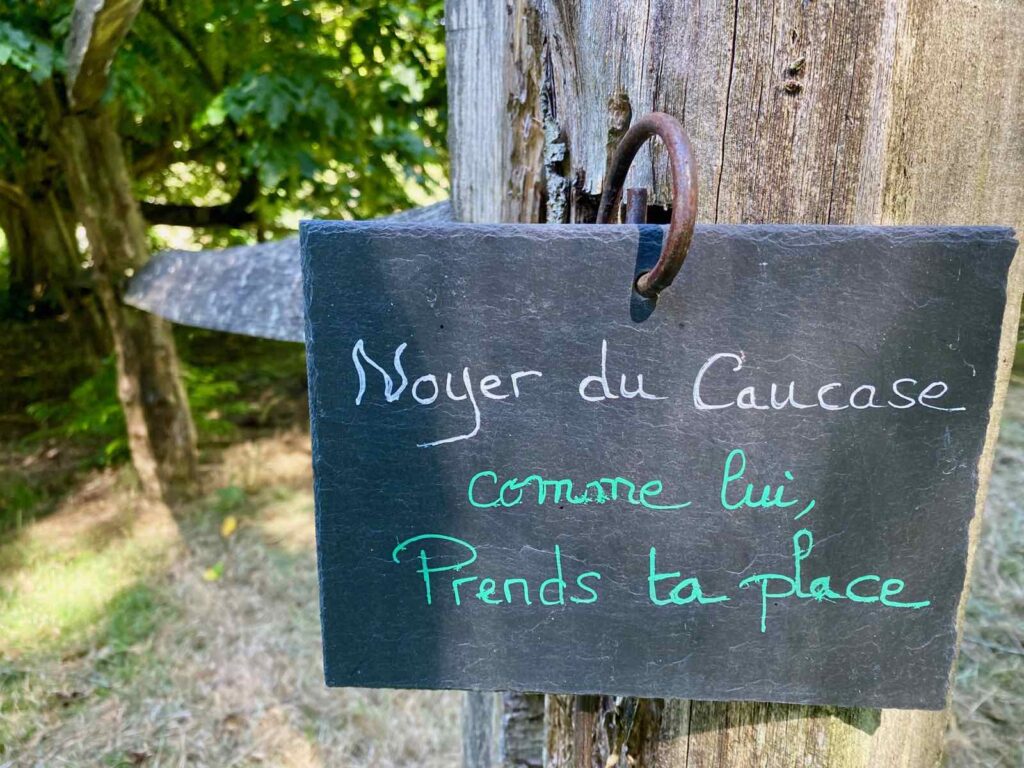 Noyer du Caucase
comme lui,
Prends ta place